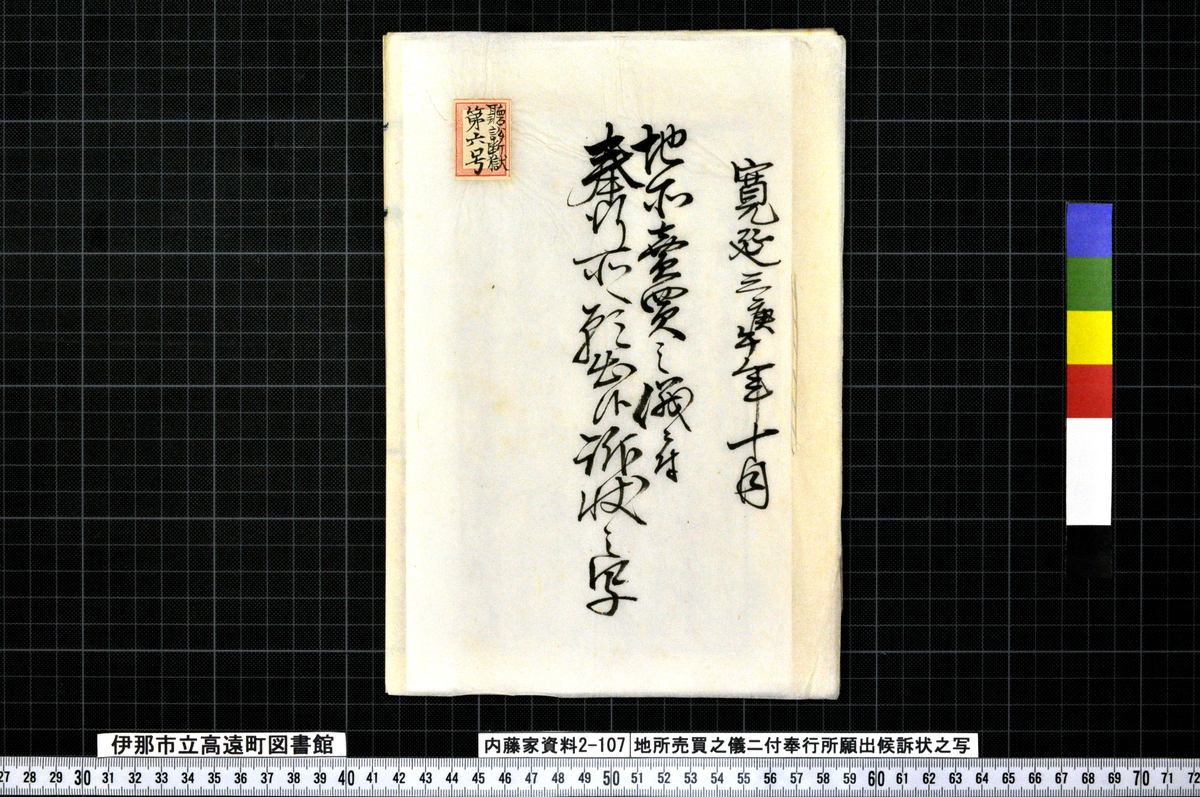 寛延三庚午年十月
地所賣買之儀ニ付
奉行所へ願出候訴状之写
聽訟断獄
第六号
伊那市立高遠町図書館
内藤家資料2-107
地所売買之儀ニ付奉行所願出候訴状之写
27 28 29 30 31 32 33 34 35 36 37 38 39 40 41 42 43 44 45 46 47 48 49 50 51 52 53 54 55 56 57 58 59 60 61 62 63 64 65 66 67 68 69 70 71 72